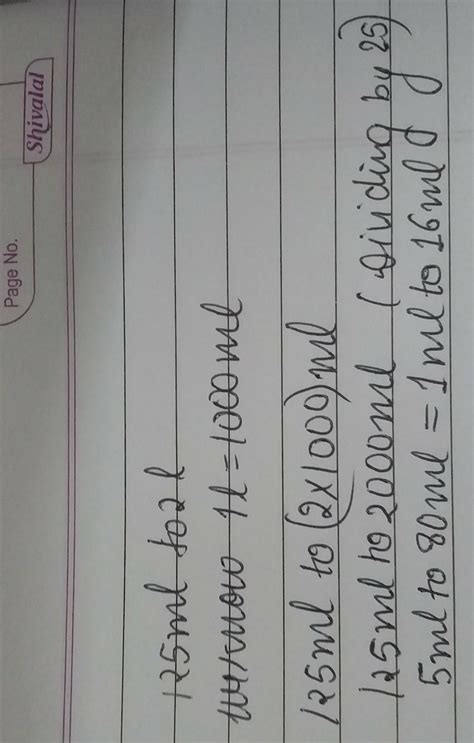 Page No.
Shivalal
125ml to 2l
we know 1l = 1000ml
125ml to (2x1000)ml
125ml to 2000ml (Dividing by 25)
5ml to 80ml = 1ml to 16ml